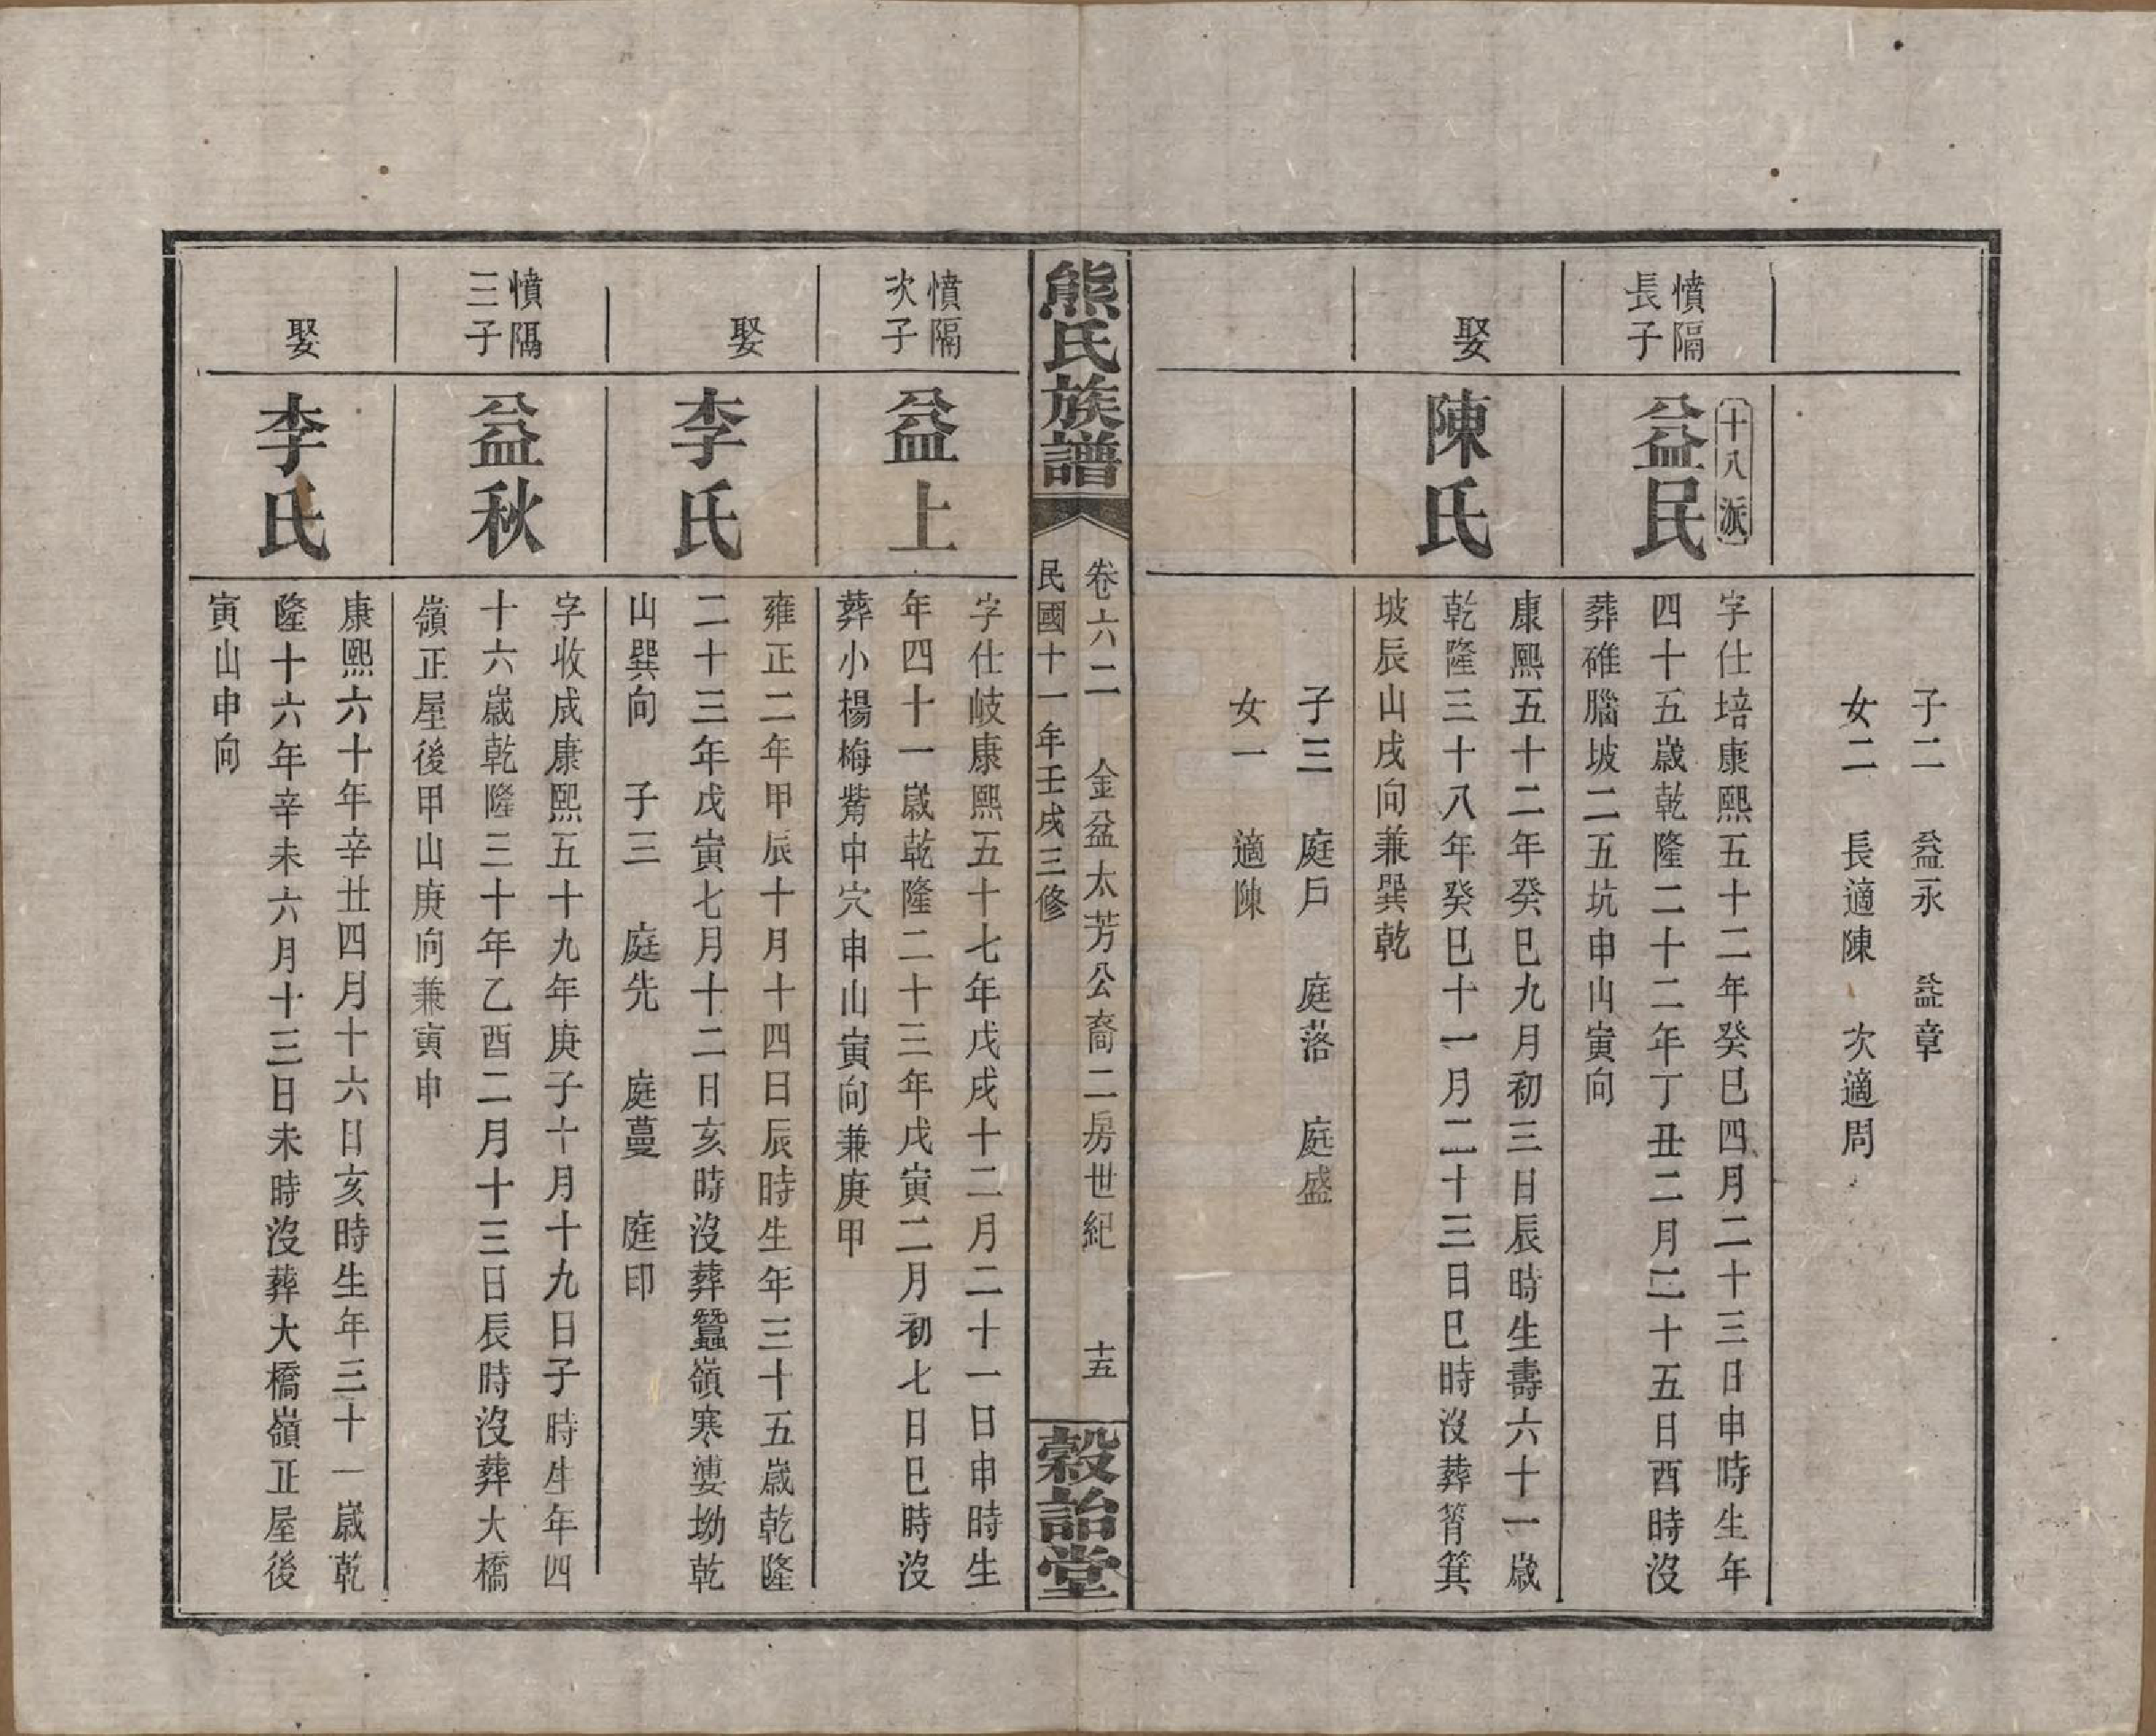 子二　益永　益章
女二　長適陳　次適周
憤隔
長子
十八派
益民
字仕培康熙五十二年癸巳四月二十三日申時生年
四十五歲乾隆二十二年丁丑二月二十五日酉時沒
葬碓腦坡二五坑申山寅向
娶
陳氏
康熙五十二年癸巳九月初三日辰時生壽六十一歲
乾隆三十八年癸巳十一月二十三日巳時沒葬筲箕
坡辰山戌向兼巽乾
子三　庭戶　庭落　庭盛
女一　適陳
熊氏族譜
卷六二　金盆太芳公裔二房世紀　十五
民國十一年壬戌三修
穀詒堂
憤隔
次子
益上
字仕岐康熙五十七年戊戌十二月二十一日申時生
年四十一歲乾隆二十三年戊寅二月初七日巳時沒
葬小楊梅觜中穴申山寅向兼庚甲
娶
李氏
雍正二年甲辰十月十四日辰時生年三十五歲乾隆
二十三年戊寅七月十二日亥時沒葬蠶嶺寒婆坳乾
山巽向　子三　庭先　庭蔓　庭印
憤隔
三子
益秋
字收成康熙五十九年庚子十月十九日子時生年四
十六歲乾隆三十年乙酉二月十三日辰時沒葬大橋
嶺正屋後甲山庚向兼寅申
娶
李氏
康熙六十年辛丑四月十六日亥時生年三十一歲乾
隆十六年辛未六月十三日未時沒葬大橋嶺正屋後
寅山申向